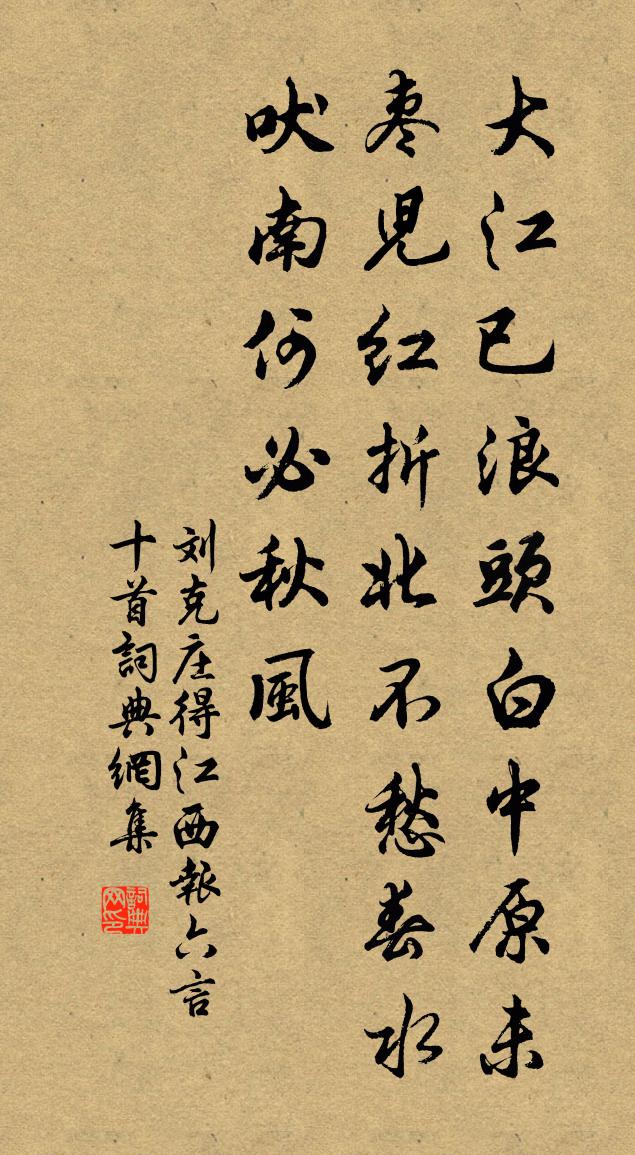 大江已浪頭白中原未
枣兒红折北不愁春水
吠南何必秋風
刘克庄得江西報六言
十首詞典網集
詞典网印